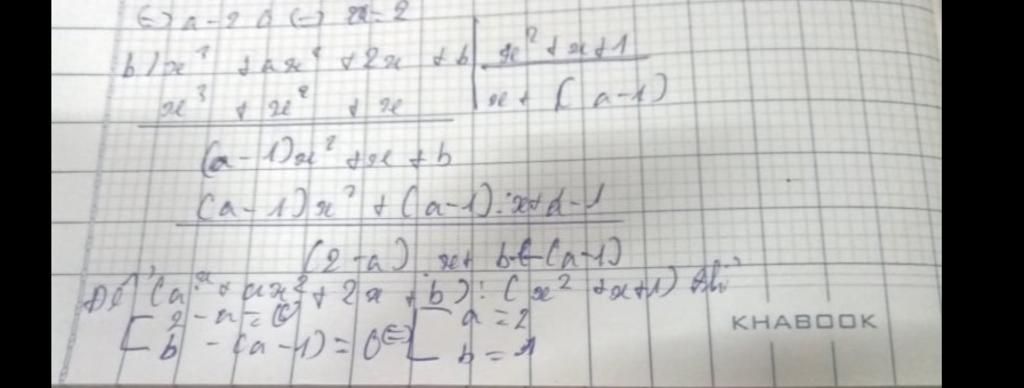 (=) a-2=0 (=) a=2
b) x³ + ax² + 2x + b | x² + x + 1
x³ + x² + x | x + (a-1)
(a-1)x² + x + b
(a-1)x² + (a-1).x + a-1
(2-a) x + b - (a-1)
Để (x³ + ax² + 2x + b) : (x² + x + 1) thì
[ 2 - a = 0 (=) [ a = 2
[ b - (a-1) = 0 [ b = 1
KHABOOK